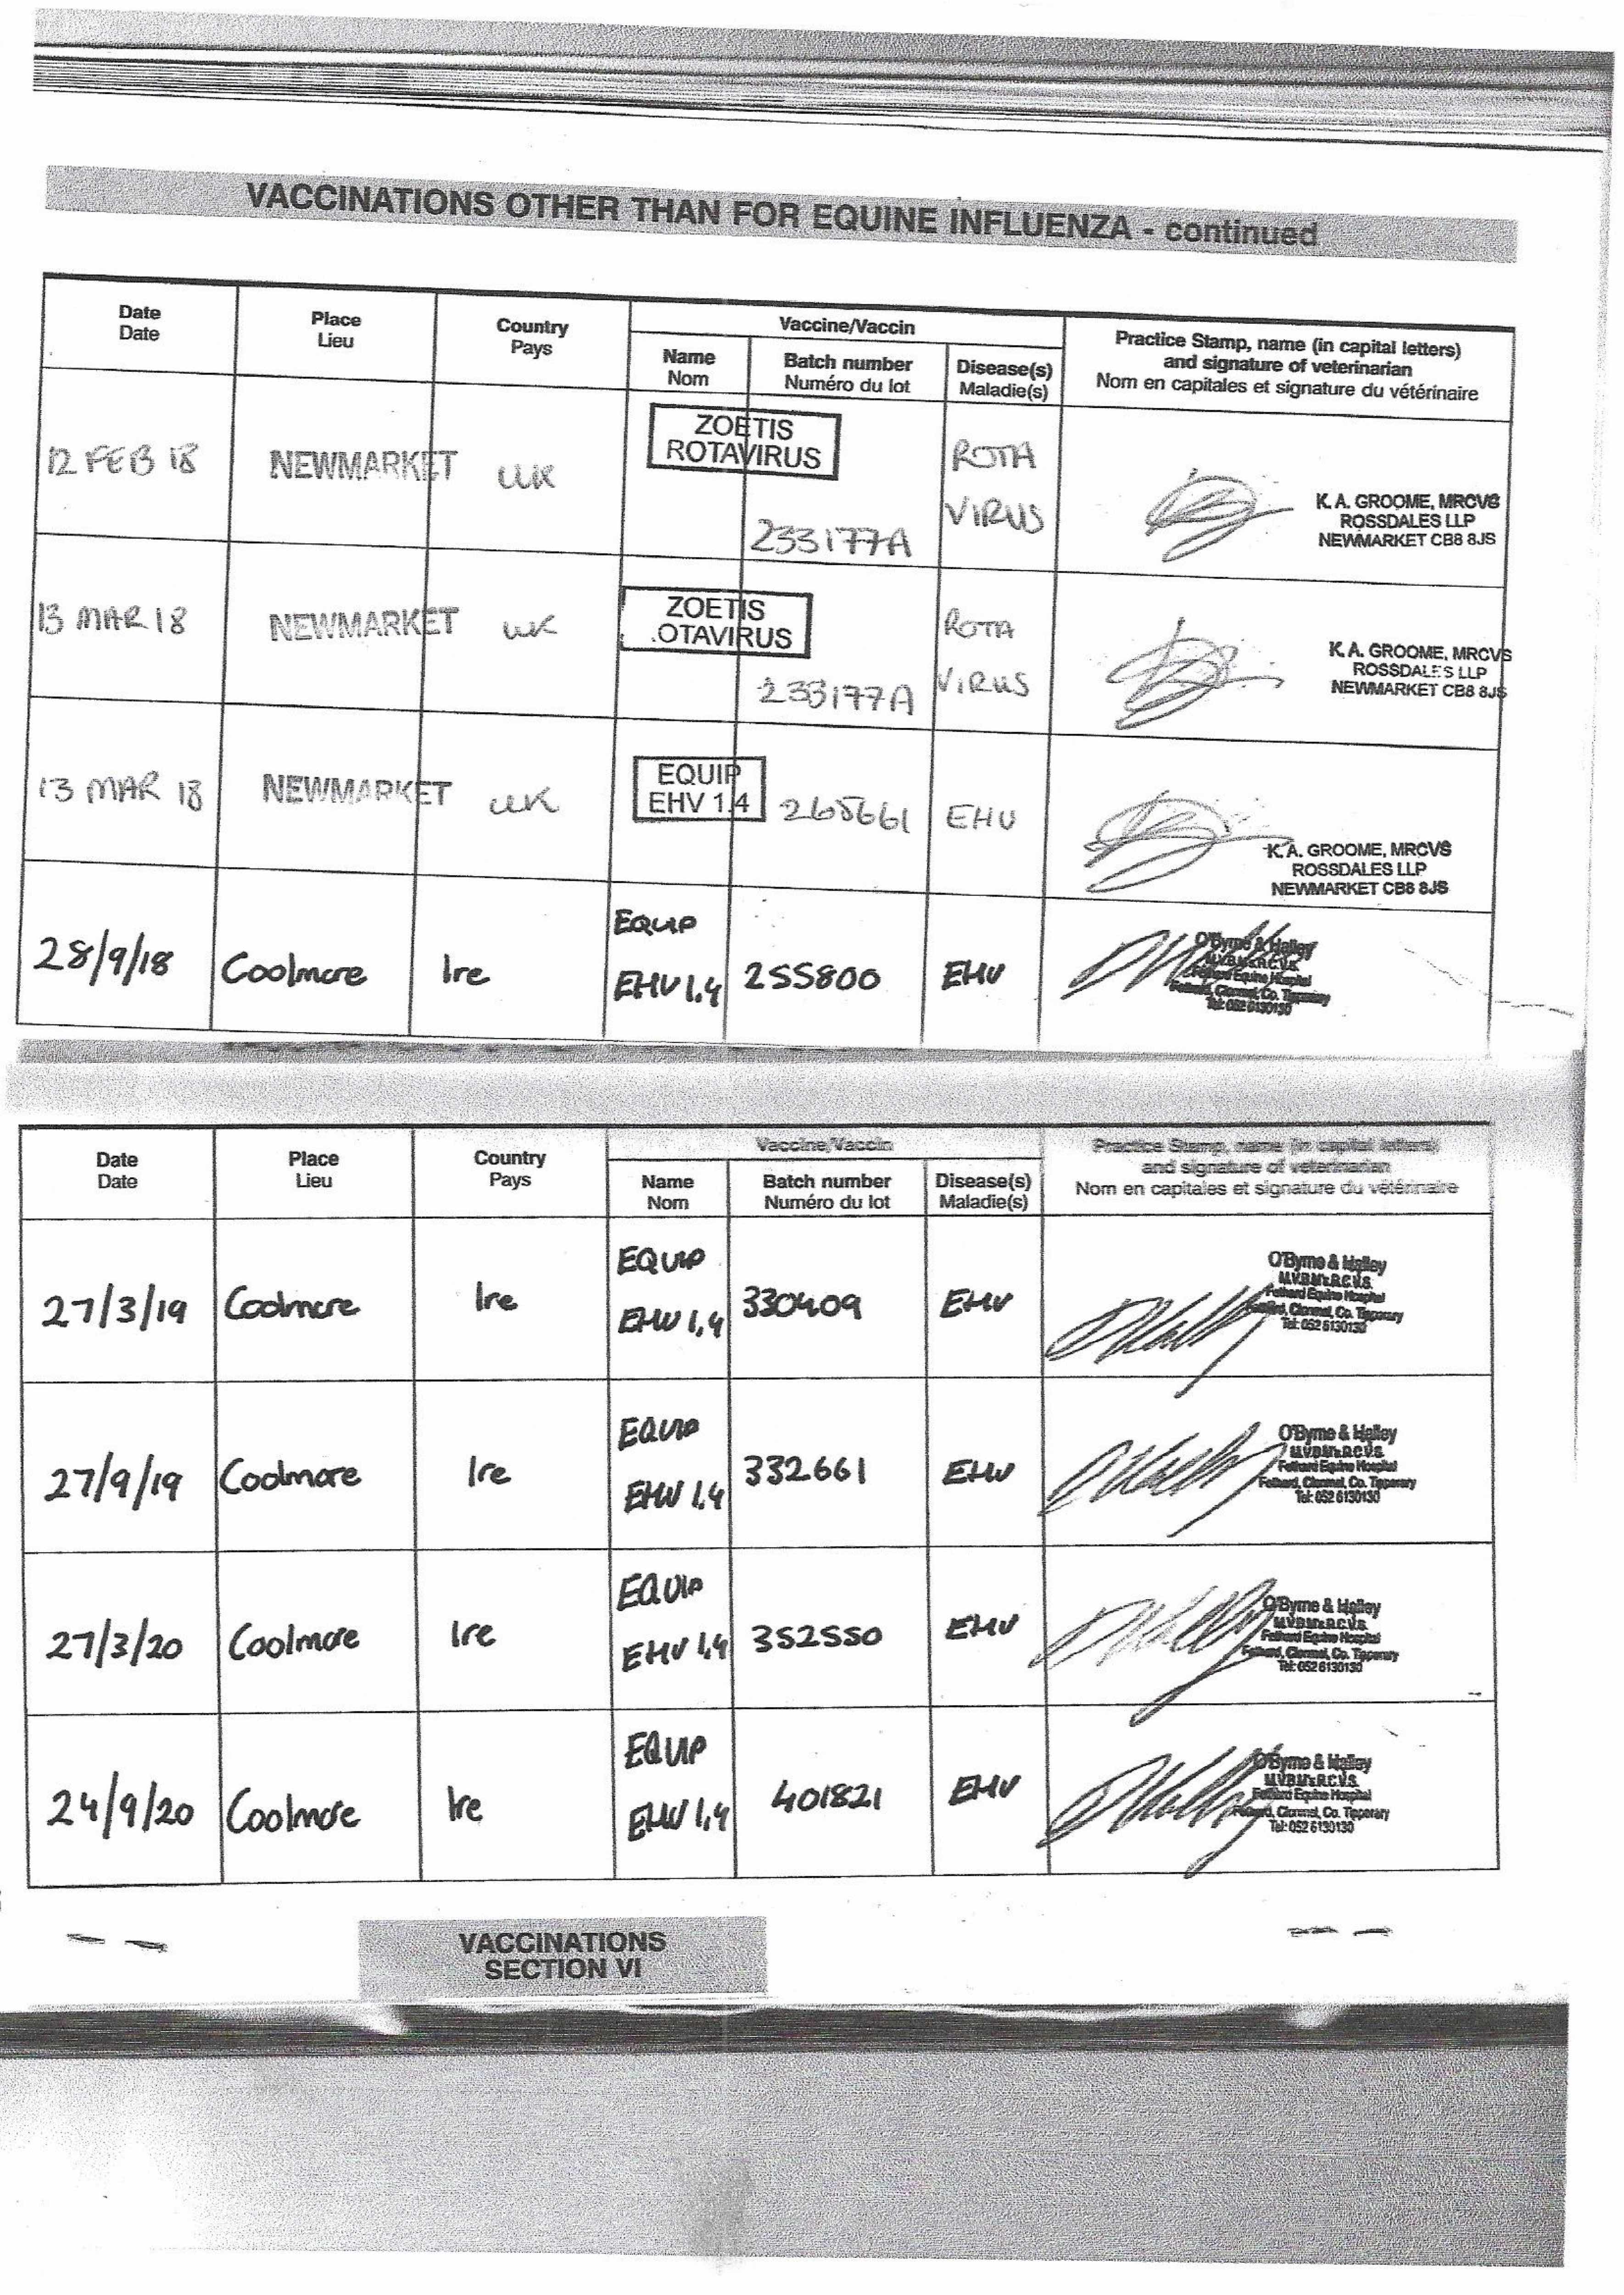 VACCINATIONS OTHER THAN FOR EQUINE INFLUENZA - continued
Date Place Country Vaccine/Vaccin Practice Stamp, name (in capital letters)
Date Lieu Pays Name Batch number Disease(s) and signature of veterinarian
Nom Numéro du lot Maladie(s) Nom en capitales et signature du vétérinaire
12 FEB 18 NEWMARKET UK ZOETIS ROTA
ROTAVIRUS VIRUS K. A. GROOME, MRCVS
233177A ROSSDALES LLP
NEWMARKET CB8 8JS
13 MAR 18 NEWMARKET UK ZOETIS ROTA
OTAVIRUS VIRUS K. A. GROOME, MRCVS
233177A ROSSDALES LLP
NEWMARKET CB8 8JS
13 MAR 18 NEWMARKET UK EQUIP
EHV 1.4 265661 EHV
K. A. GROOME, MRCVS
ROSSDALES LLP
NEWMARKET CB8 8JS
EQUIP O'Byrne & Halley
28/9/18 Coolmore Ire EHV 1,4 255800 EHV M.V.B. M.R.C.V.S.
Fethard Equine Hospital
Fethard, Clonmel, Co. Tipperary
Tel: 052 6130130
Date Place Country Vaccine/Vaccin Practice Stamp, name (in capital letters)
Date Lieu Pays Name Batch number Disease(s) and signature of veterinarian
Nom Numéro du lot Maladie(s) Nom en capitales et signature du vétérinaire
EQUIP O'Byrne & Halley
27/3/19 Coolmore Ire EHV 1,4 330409 EHV M.V.B. M.R.C.V.S.
Fethard Equine Hospital
Fethard, Clonmel, Co. Tipperary
Tel: 052 6130130
EQUIP O'Byrne & Halley
27/9/19 Coolmore Ire EHV 1,4 332661 EHV M.V.B. M.R.C.V.S.
Fethard Equine Hospital
Fethard, Clonmel, Co. Tipperary
Tel: 052 6130130
EQUIP O'Byrne & Halley
27/3/20 Coolmore Ire EHV 1,4 352550 EHV M.V.B. M.R.C.V.S.
Fethard Equine Hospital
Fethard, Clonmel, Co. Tipperary
Tel: 052 6130130
EQUIP O'Byrne & Halley
24/9/20 Coolmore Ire EHV 1,4 401821 EHV M.V.B. M.R.C.V.S.
Fethard Equine Hospital
Fethard, Clonmel, Co. Tipperary
Tel: 052 6130130
VACCINATIONS
SECTION VI